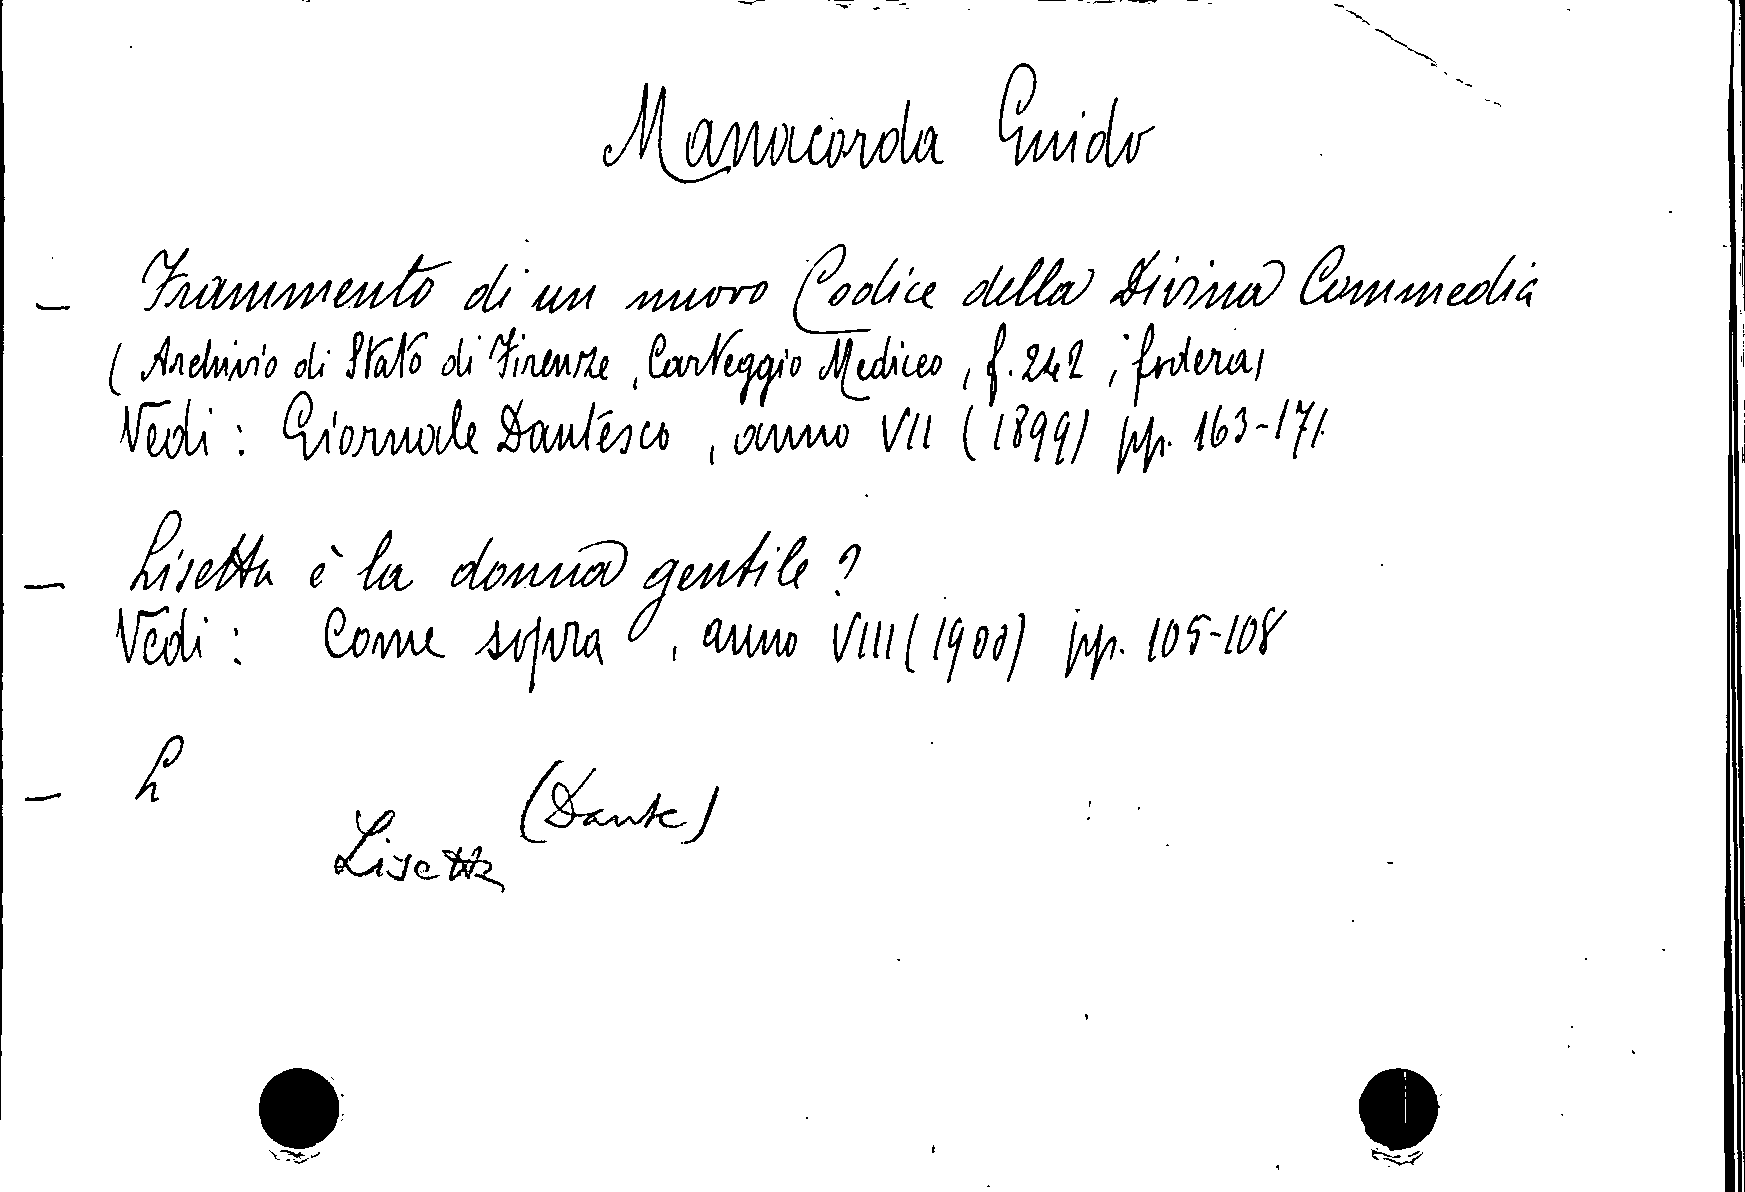 Manacorda Guido
— Frammento di un nuovo Codice della Divina Commedia
(Archivio di Stato di Firenze, Carteggio Mediceo, f. 242, fodera)
Vedi: Giornale Dantesco, anno VII (1899) pp. 163-171.
— Lisetta è la donna gentile?
Vedi: Come sopra, anno VIII (1900) pp. 105-108
— L
(Dante)
Lisetta